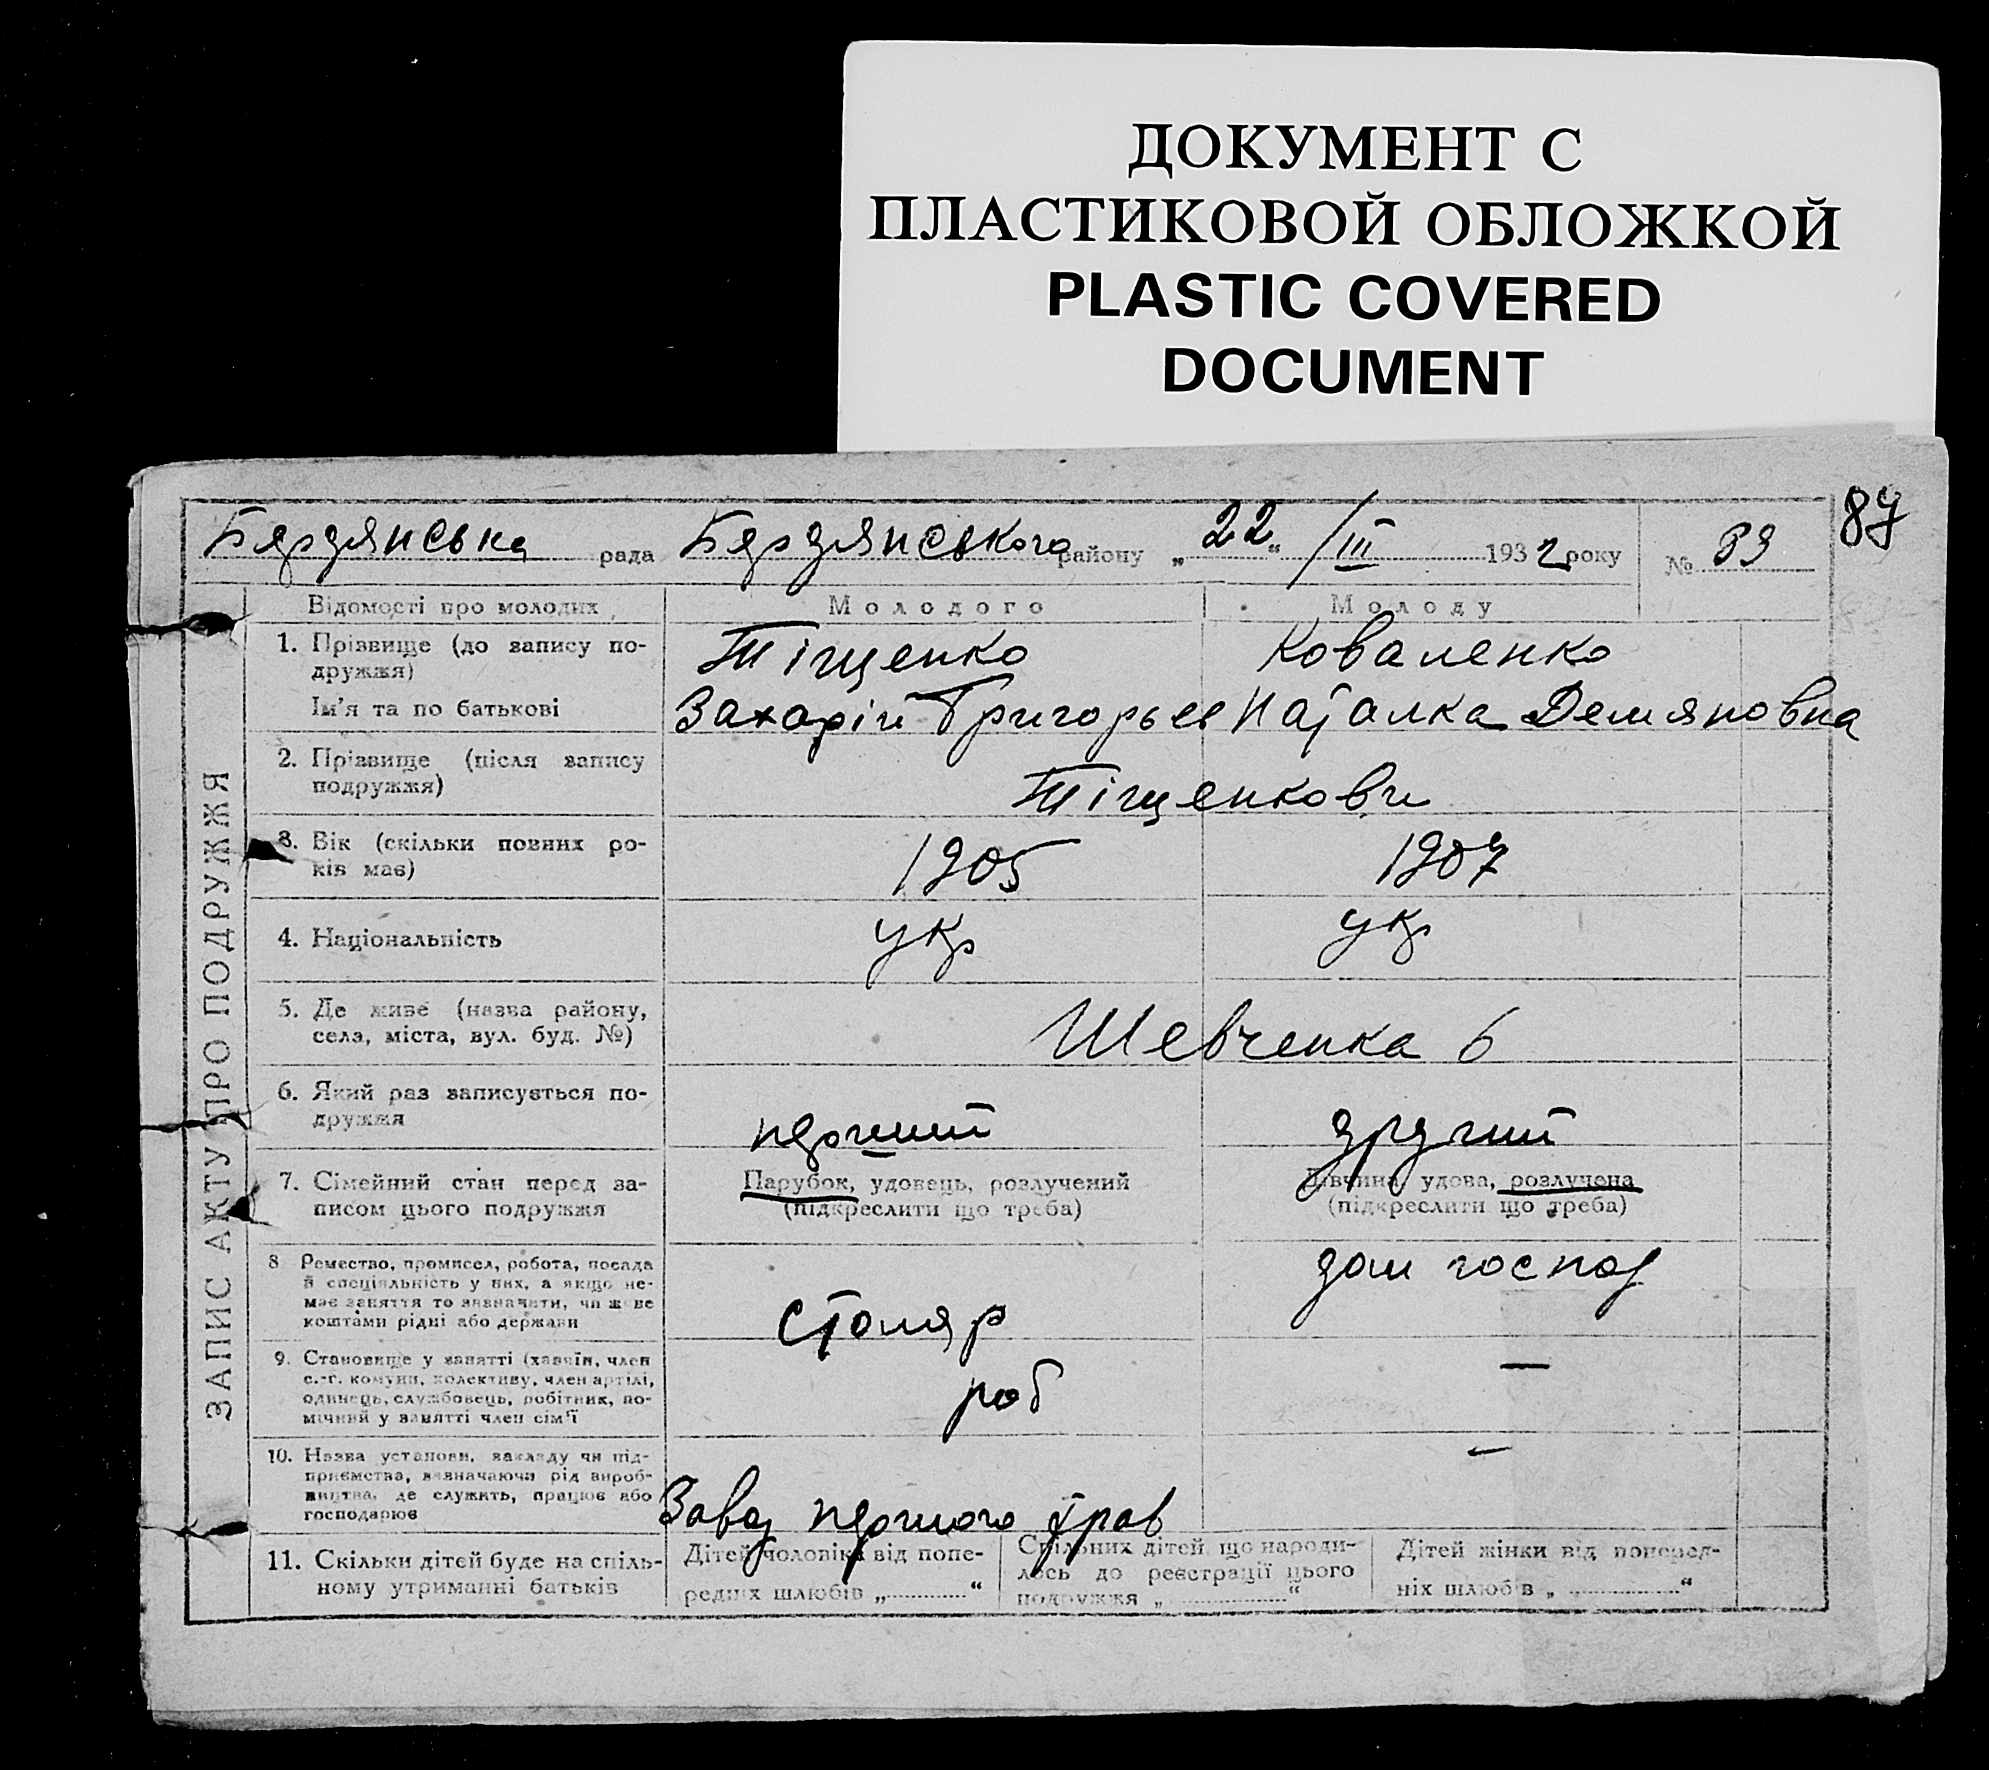 ДОКУМЕНТ С
ПЛАСТИКОВОЙ ОБЛОЖКОЙ
PLASTIC COVERED
DOCUMENT
87
Бердянська рада Бердянського району „22“ /III 1932 року № 89
ЗАПИС АКТУ ПРО ПОДРУЖЖЯ
Відомості про молодих Молодого Молоду
1. Прізвище (до запису по-
дружжя) Тіщенко Коваленко
Ім'я та по батькові Захарій Григорьев Наталка Демяновна
2. Прізвище (після запису
подружжя) Тіщенкови
3. Вік (скільки повних ро-
ків має) 1905 1907
4. Національність укр укр
5. Де живе (назва району,
села, міста, вул. буд. №) Шевченка 6
6. Який раз записується по-
дружжя первший другий
7. Сімейний стан перед за- Парубок, удовець, розлучений Дівчина, удова, розлучена
писом цього подружжя (підкреслити що треба) (підкреслити що треба)
8 Ремество, промисел, робота, посада дом господ
й спеціяльність у них, а якщо не-
має заняття то зазначити, чи живе
коштами рідні або держави столяр
9. Становище у занятті (хазяїн, член —
с.-г. комуни, колективу, член артілі,
одинець, службовець, робітник, по- роб
мічний у занятті член сім'ї
10. Назва установи, закладу чи під- —
приємства, зазначаючи рід вироб-
ництва, де служить, працює або
господарює Завод
11. Скільки дітей буде на спіль- Дітей чоловіка від попе- Спільних дітей, що народи- Дітей жінки від поперед-
ному утриманні батьків редніх шлюбів „ “ лось до реєстрації цього ніх шлюбів „ “
подружжя „ “